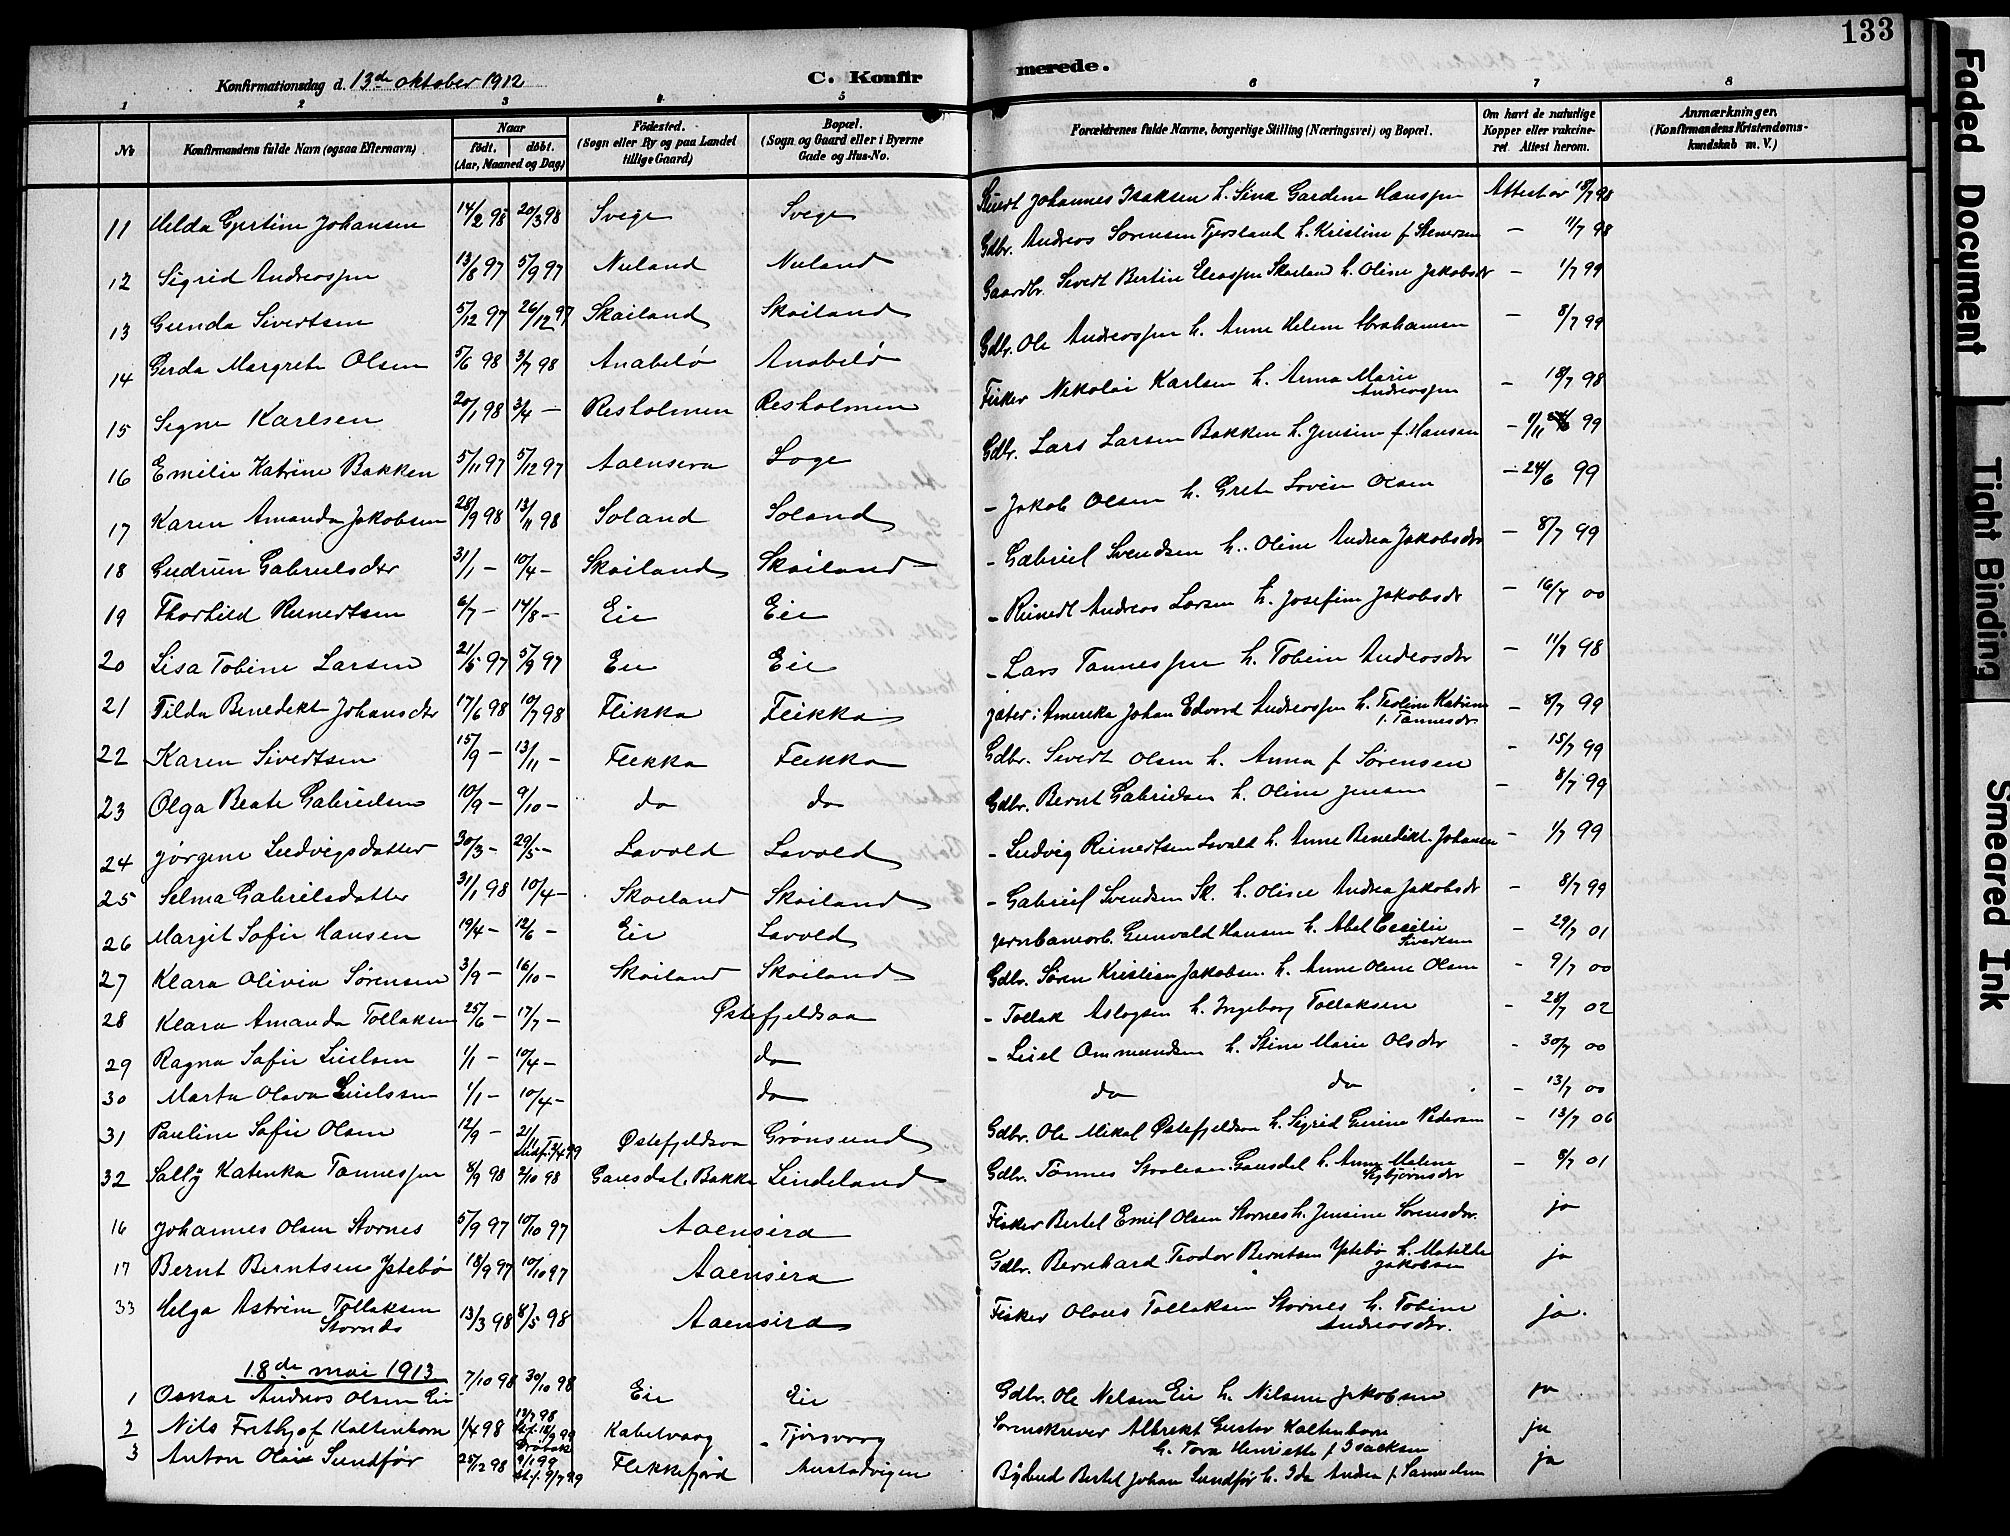 133
Konfirmationsdag d. 13de oktober 1912
C. Konfirmerede.
1 2 3 4 5 6 7 8
No
Konfirmandens fulde Navn (ogsaa Efternavn)
Naar
født. døbt.
(Aar, Maaned og Dag)
Fødested.
(Sogn eller By og paa Landet
tillige Gaard)
Bopæl.
(Sogn og Gaard eller i Byerne
Gade og Hus-No.
Forældrenes fulde Navne, borgerlige Stilling (Næringsvei) og Bopæl.
Om havt de naturlige
Kopper eller vakcine-
ret. Attest herom.
Anmærkninger.
(Konfirmandens Kristendoms-
kundskab m. V.)
11 Helda Gjertine Johansen 14/2 98 20/3 98 Svege Svege Johannes Isaksen h. Sina Gardine Hansen Attest av 18/7 98
12 Sigrid Andreassen 13/8 97 5/9 97 Nuland Nuland Gdbr. Andreas Sørensen Tjorsland h. Kristine f. Stenersen - 11/7 98
13 Gunda Sivertsen 5/12 97 26/12 97 Skailand Skailand Gaardbr. Sivert Bertin Eleasen Skailand h. Oline Jakobsdr - 1/7 99
14 Gerda Margrete Olsen 5/6 98 3/7 98 Anabelø Anabelø Gdbr. Ole Andreassen h. Anne Helene Abrahamsen - 8/7 99
15 Signe Karlsen 20/1 98 3/4 - Resholmen Resholmen Fisker Nikolai Karlsen h. Anna Marie Andreassen - 18/7 98
16 Emilie Katrine Bakken 5/11 97 5/12 97 Aaensira Loge Gdbr. Lars Larsen Bakken h. Jensine f. Hansen - 1/11 99
17 Karen Amanda Jakobsen 28/9 98 13/11 98 Soland Soland - Jakob Olsen h. Grete Lovise Olsen - 24/6 99
18 Gudrun Gabrielsdtr 31/1 - 10/4 - Skailand Skailand - Gabriel Svendsen h. Oline Andrea Jakobsdr - 8/7 99
19 Thorhild Reinertsen 6/7 - 14/8 - Eie Eie - Reinert Andreas Larsen h. Josefine Jakobsdr - 16/7 00
20 Lisa Tobine Larsen 21/5 97 5/9 97 Eie Eie - Lars Tønnessen h. Tobine Andreasdtr - 11/7 98
21 Tilda Benedikte Johansdtr 17/6 98 10/7 98 Flikka Flikka i Amerika Johan Edvard Andreassen h. Teoline Katrine f. Tønnesdr - 8/7 99
22 Karen Sivertsen 15/9 - 13/11 - Flikka Flikka Gdbr. Sivert Olsen h. Anna f Sørensen - 15/7 99
23 Olga Beate Gabrielsen 10/9 - 9/10 - do do Gdbr. Bernt Gabrielsen h. Oline Jensen - 8/7 99
24 Jørgene Ludvigsdatter 30/3 - 29/5 - Lavold Lavold - Ludvig Reinertsen Lavold h. Anne Benedikte Johansen - 1/7 99
25 Selma Gabrielsdatter 31/1 98 10/4 - Skailand Skailand - Gabriel Svendsen Sk. h. Oline Andrea Jakobsdr - 8/7 99
26 Margit Sofie Hansen 19/4 - 12/6 - Eie Lavold Jernbanearb. Gunvald Hansen h. Abel Cecilie Sivertsen - 29/7 01
27 Klara Olivia Sørensen 3/9 - 16/10 - Skailand Skailand Gdbr. Søren Kristian Jakobsen h. Anne Oline Olsen - 9/7 00
28 Klara Amanda Tollaksen 25/6 - 17/7 - Østefjeldsaa - Tollak Aslagsen h. Ingeborg Tollaksen - 28/7 02
29 Ragna Sofie 1/1 - 10/4 - do - Ommundsen h. Stine Marie Olsdtr - 30/7 00
30 Marta Olava 1/1 - 10/4 - do do do - 13/7 00
31 Pauline Sofie Olsen 12/9 - 2/11 Østefjeldsaa Grønsund Gdbr. Ole Mikal Østefjeldsaa h. Sigrid Gurine Pedersen - 13/7 06
32 Sally Katinka Tønnessen 8/9 98 2/10 98 Gausdal. Bakke Lindeland Gdbr. Tønnes Gausdal h. Anne Malene - 8/7 01
16 Johannes Olsen Stornes 5/9 97 10/10 97 Aaensira Fisker Bertel Emil Olsen Stornes h. Jensine Sørensdr. ja
17 Bernt Berntsen Ystebø 18/9 97 10/10 97 Aaensira Gdbr. Bernhard Teodor Berntsen Ystebø h. Matilde Jakobsen ja
33 Helga Astrine Tollaksen Stornes 13/3 98 8/5 98 Aaensira Fisker Olaus Tollaksen Stornes h. Tobine Andreasdr. ja.
18de mai 1913
1 Oskar Andreas Olsen Eie 7/10 98 30/10 98 Eie Eie Gdbr. Ole Nelsen Eie h. Nilsine Jakobsen ja
2 Nils Frithjof Kaltenborn 1/4 98 13/7 98 Kabelvaag Tjørsvaag Sorenskriver Albrekt Gustav Kaltenborn h. Tora Henriette f Isacksen ja
3 Anton Olai Sundfør 25/12 98 9/1 99 Flekkefjord Austadvigen Bybud Bertel Johan Sundfør h. Ida Andrea f. Samuelsen ja
Faded Document
Tight Binding
Smeared Ink